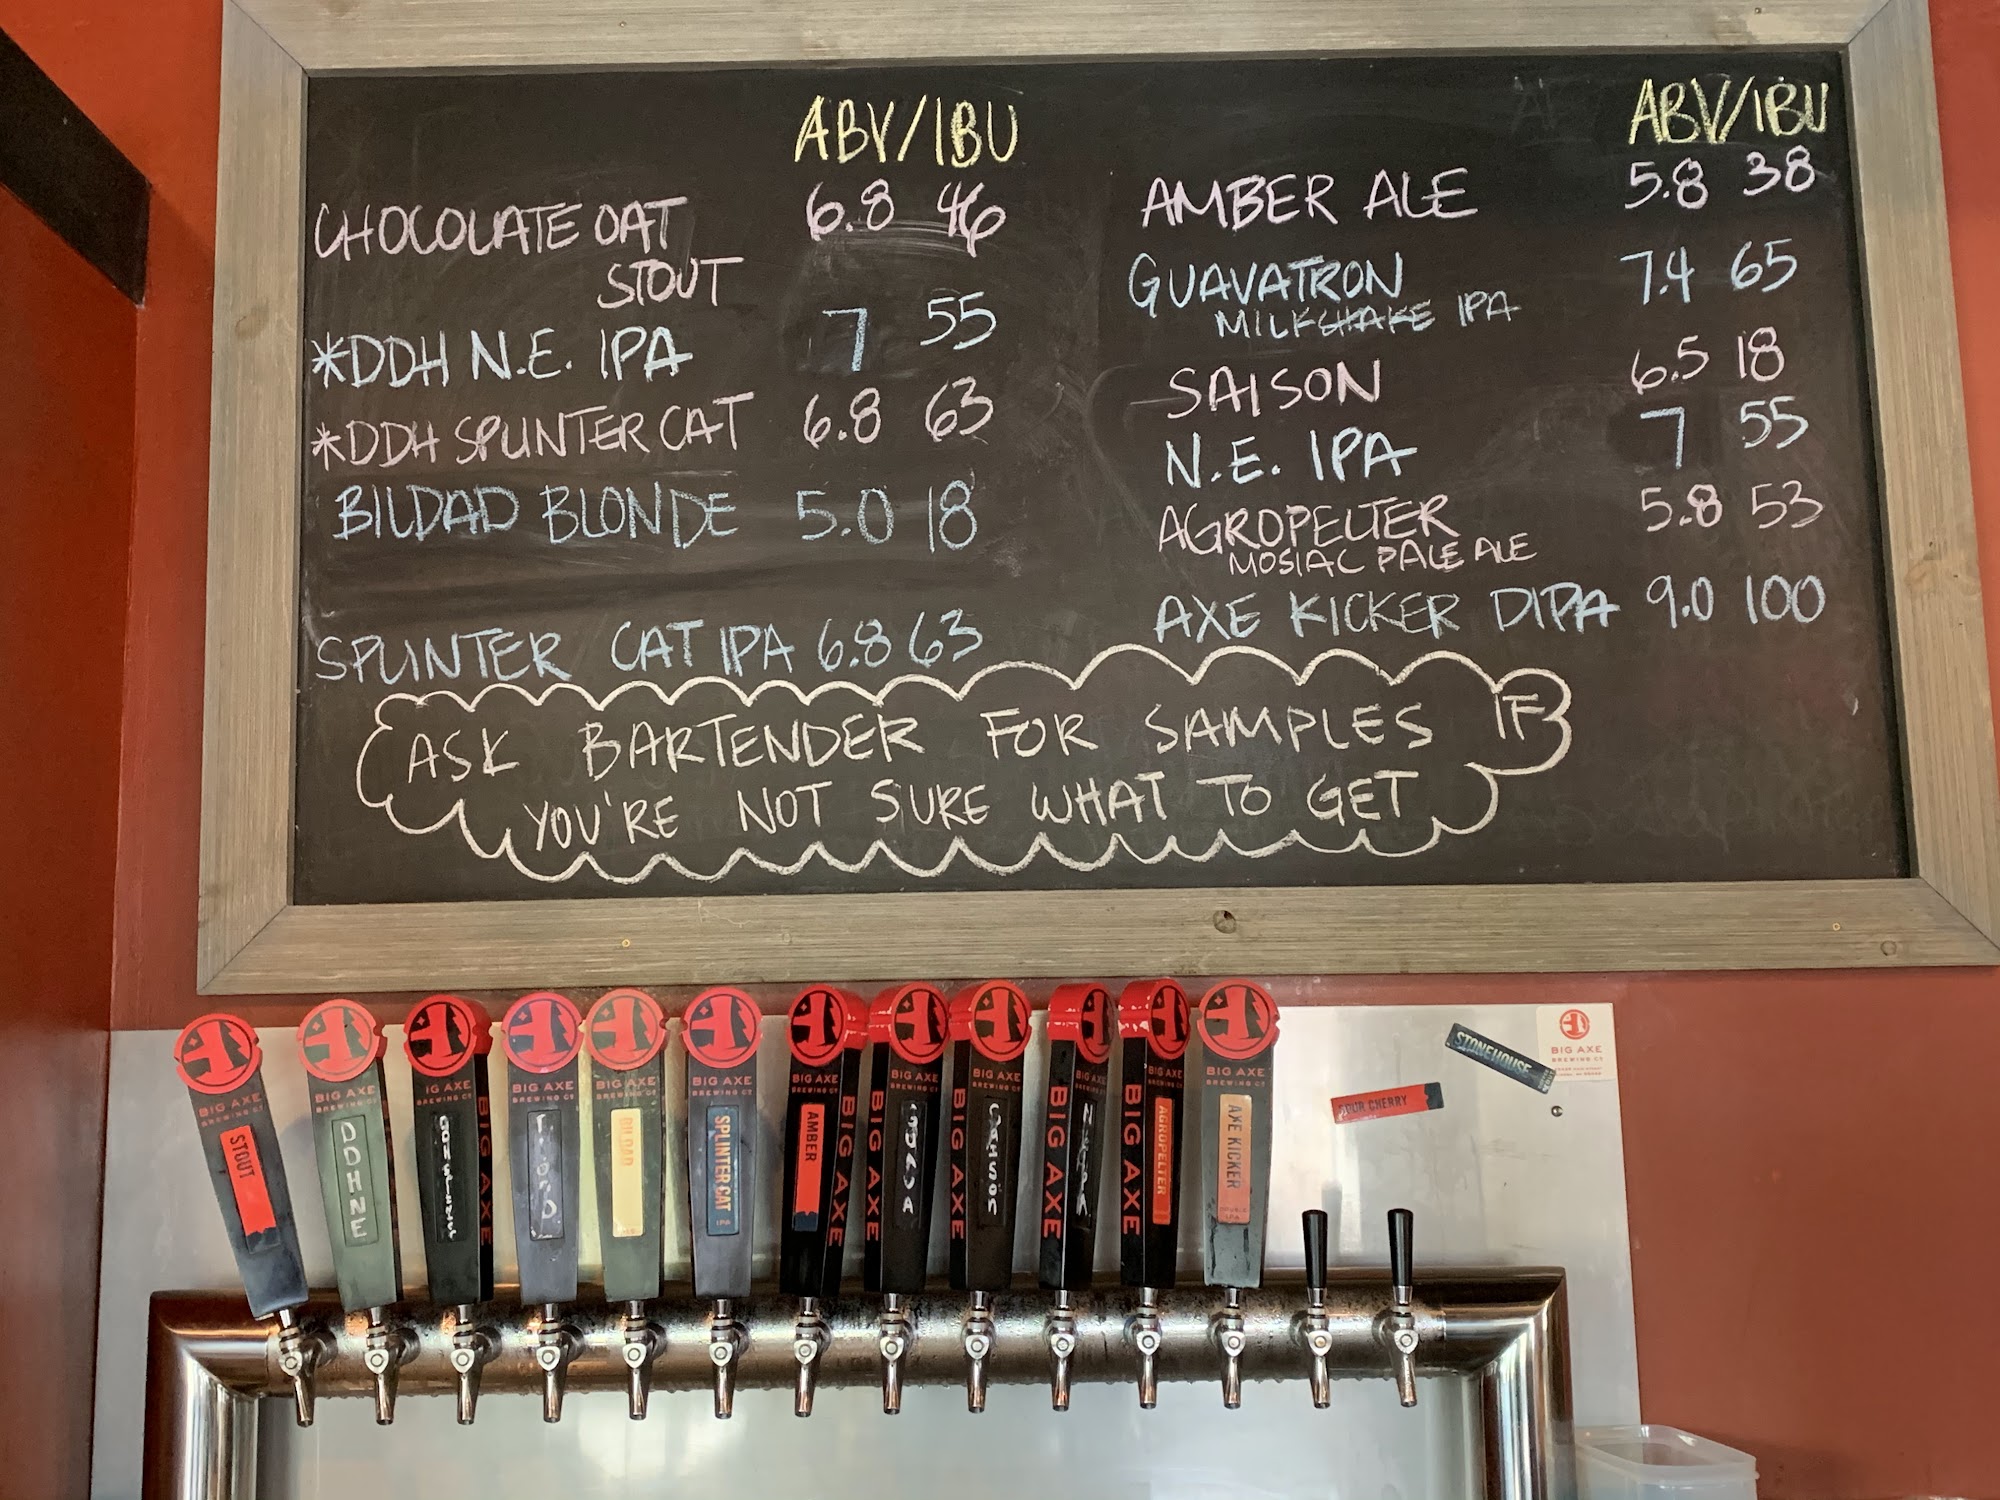 ABV/IBU
CHOCOLATE OAT 6.8 46
STOUT
*DDH N.E. IPA 7 55
*DDH SPLINTER CAT 6.8 63
BILDAD BLONDE 5.0 18
SPLINTER CAT IPA 6.8 63
ABV/IBU
AMBER ALE 5.8 38
GUAVATRON 7.4 65
MILKSHAKE IPA
SAISON 6.5 18
N.E. IPA 7 55
AGROPELTER 5.8 53
MOSIAC PALE ALE
AXE KICKER DIPA 9.0 100
ASK BARTENDER FOR SAMPLES IF
YOU'RE NOT SURE WHAT TO GET
BIG AXE
BREWING CO
STOUT
BIG AXE
BREWING CO
DDHNE
IG AXE
BREWING CO
BIG AXE
BIG AXE
BREWING CO
BIG AXE
BREWING CO
BILDAD
BIG AXE
BREWING CO
SPLINTER CAT
IPA
BIG AXE
BREWING CO
AMBER
BIG AXE
BIG AXE
BREWING CO
BIG AXE
BIG AXE
BREWING CO
BIG AXE
BIG AXE
BIG AXE
BIG AXE
BREWING CO
AGROPELTER
BIG AXE
BIG AXE
BREWING CO
AXE KICKER
DOUBLE
IPA
SOUR CHERRY
STONEHOUSE
BIG AXE
BREWING CO